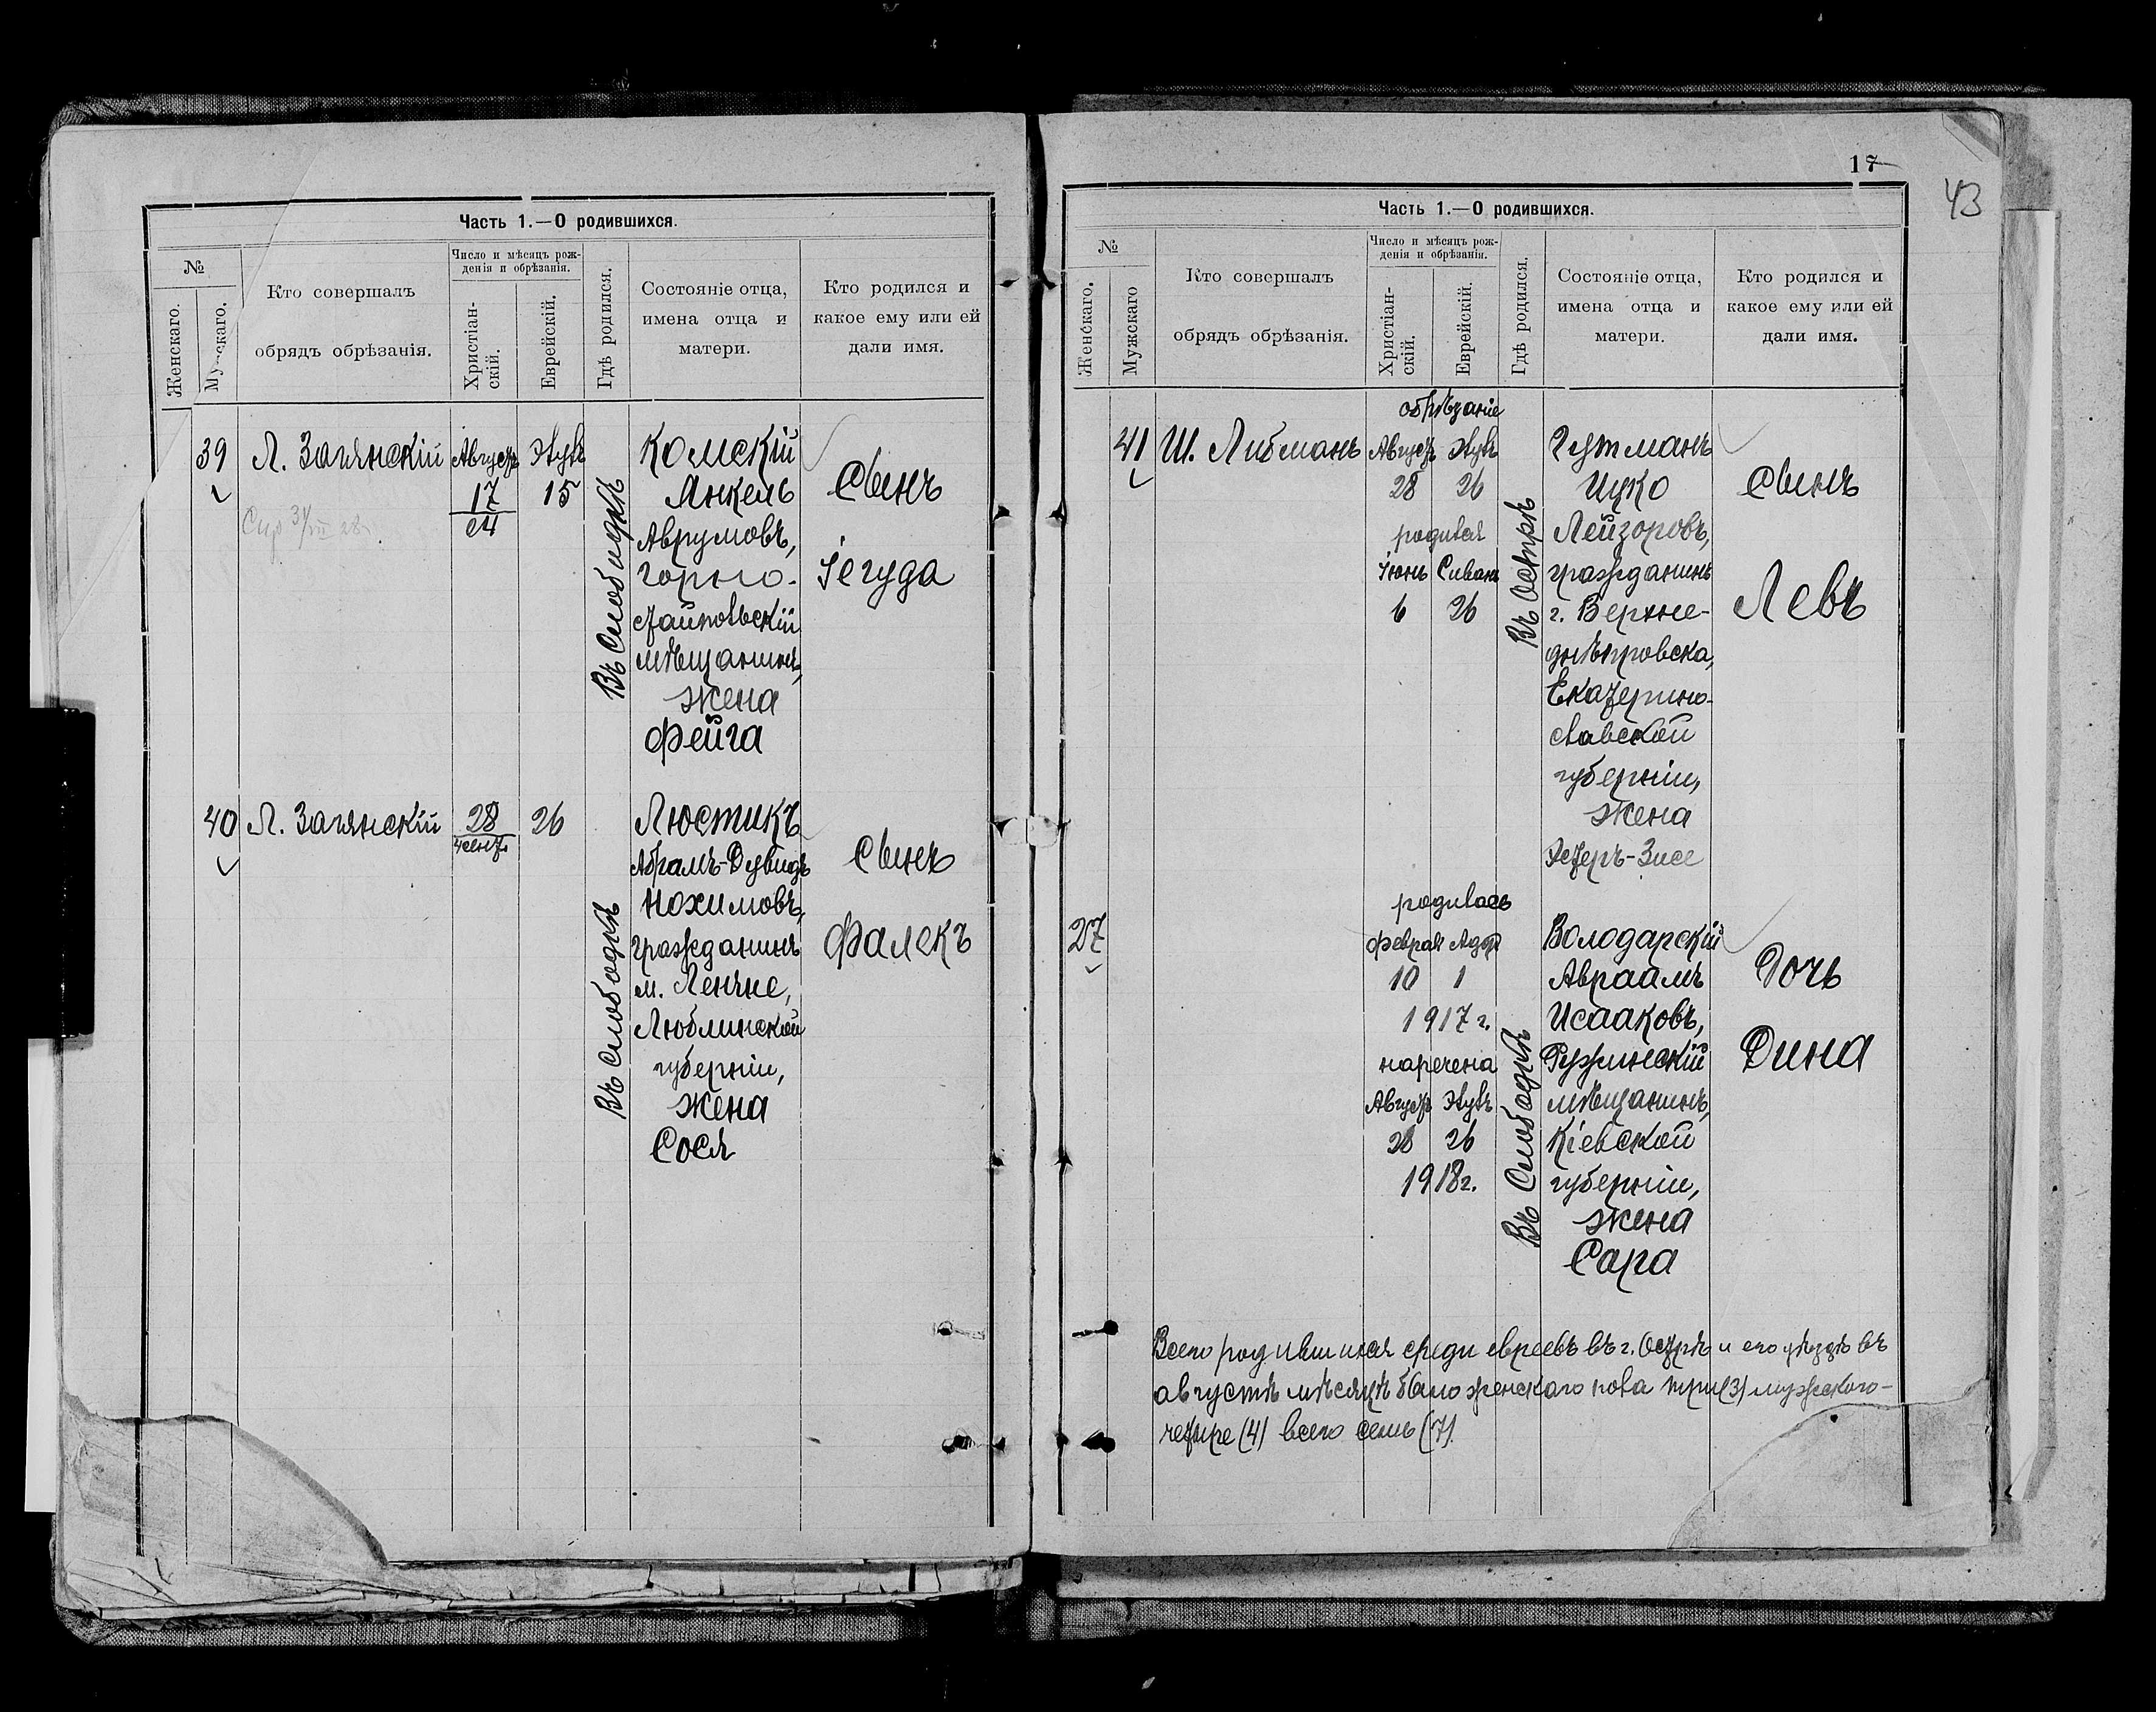 Часть 1.—О родившихся.
№
Женскаго.
Мужскаго.
Кто совершалъ
обрядъ обрѣзанія.
Число и мѣсяцъ рож-
денія и обрѣзанія.
Христіан-
скій.
Еврейскій.
Гдѣ родился.
Состояніе отца,
имена отца и
матери.
Кто родился и
какое ему или ей
дали имя.
39
Л. Заглнскій
Августъ
17
24
Элулъ
15
Въ Слободкѣ
Комскій
Янкель
Аврумовъ,
горно-
стайпольскій
мѣщанинъ,
жена
Фейга
Сынъ
Іегуда
40
Л. Заглнскій
28
4 сент.
26
Въ Слободкѣ
Люстикъ
Абрамъ-Дувидъ
Нохимовъ,
гражданинъ
м. Ленчне,
Люблинской
губерніи,
жена
Сося
Сынъ
Фалекъ
17
43
Часть 1.—О родившихся.
№
Женскаго.
Мужскаго
Кто совершалъ
обрядъ обрѣзанія.
Число и мѣсяцъ рож-
денія и обрѣзанія.
Христіан-
скій.
Еврейскій.
Гдѣ родился.
Состояніе отца,
имена отца и
матери.
Кто родился и
какое ему или ей
дали имя.
41
Ш. Либманъ
обрѣзаніе
Августъ Элулъ
28 26
родился
Іюнь Сиванъ
6 26
Въ Острѣ
Гутманъ
Ицко
Лейзоровъ,
гражданинъ
г. Верхне-
днѣпровска,
Екатерино-
славской
губерніи,
жена
Эстеръ-Зисе
Сынъ
Левъ
27
родилась
Февраля Адаръ
10 1
1917 г.
наречена
Августъ Элулъ
28 26
1918 г.
Въ Слободкѣ
Володарскій
Авраамъ
Исааковъ,
Ружинскій
мѣщанинъ,
Кіевской
губерніи,
жена
Сара
Дочь
Дина
Всего родившихся среди евреевъ въ г. Острѣ и его уѣздѣ въ
августѣ мѣсяцѣ было женскаго пола три (3) мужского-
четыре (4) всего семь (7).